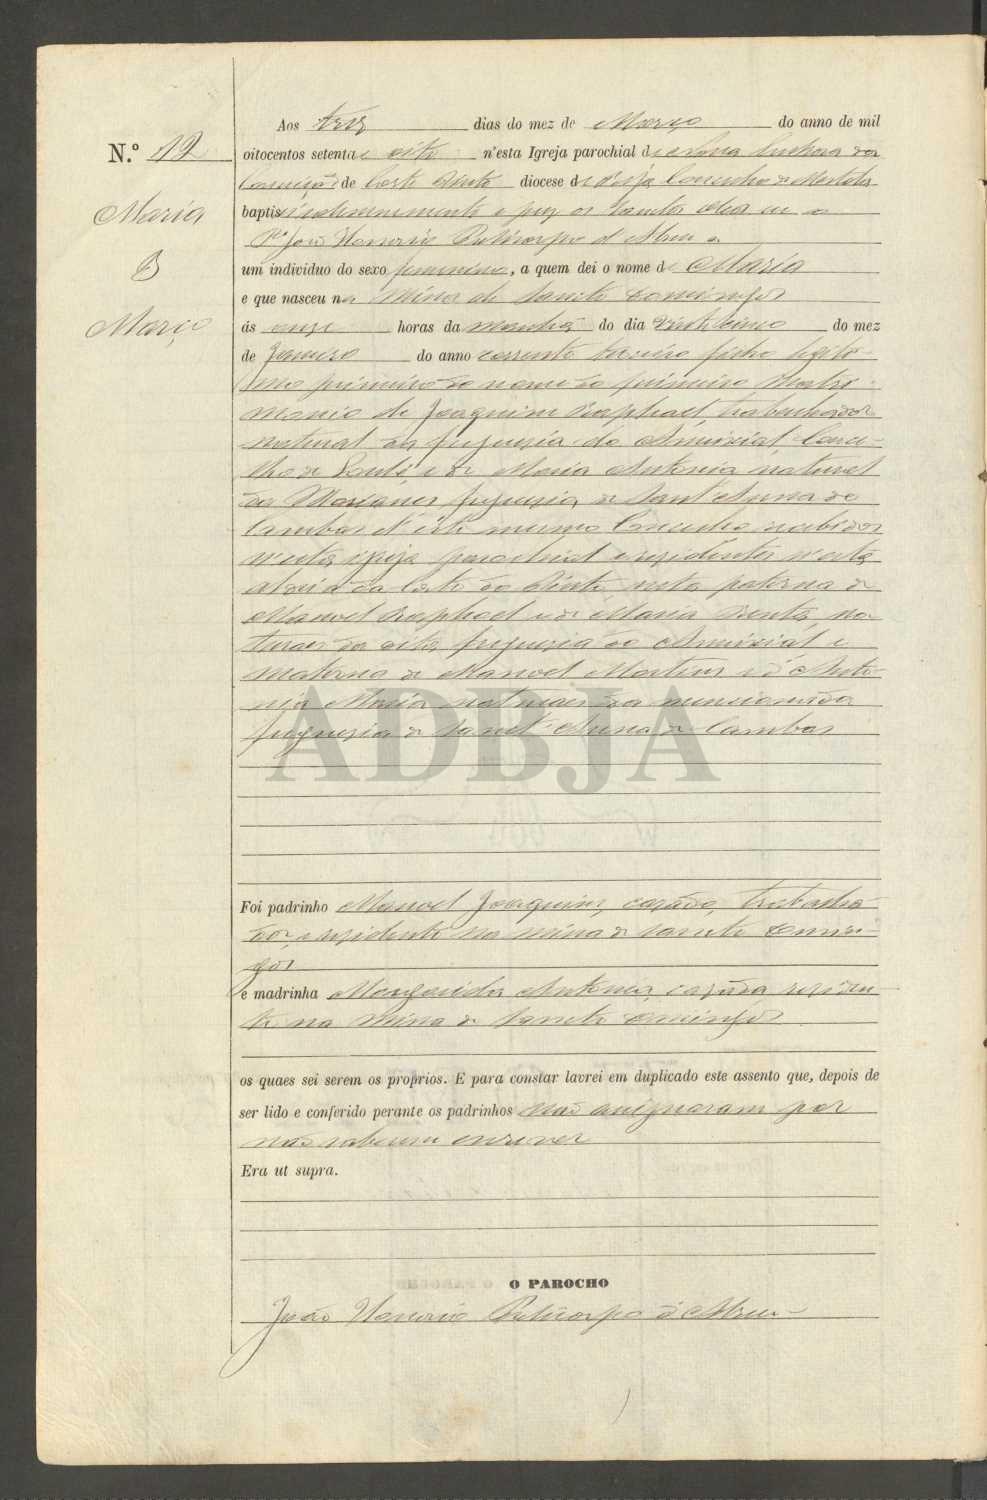 N.º 12
Maria
B
Março
Aos tres dias do mez de Março do anno de mil
oitocentos setenta e oito n'esta Igreja parochial de Nossa Senhora da
Conceição de Corte Pinto diocese de Beja Concelho de Mertola
baptisei solemnemente e puz os Santos Oleos eu o
P.e João Honorio Policarpo d'Abreu a
um individuo do sexo feminino, a quem dei o nome de Maria
e que nasceu na Mina de Sancto Domingos
ás onze horas da manhã do dia vinte cinco do mez
de Janeiro do anno corrente terceiro filho legiti-
mo primeiro do nome do primeiro Matri-
monio de Joaquim Raphael, trabalhador
natural da freguesia do Ameixial Conce-
lho de Loulé, e de Maria Antonia, natural
freguesia de Sant'Anna de
Cambas d'este mesmo Concelho recebidos
n'esta igreja parochial e residentes n'esta
aldeia da Corte do Pinto neta paterna de
Manoel Raphael e de Maria Benta, na-
turaes da dita freguesia do Ameixial e
materna de Manoel Martins e d'Anto-
nia Maria naturaes da mencionada
freguesia de Sant'Anna de Cambas
ADBJA
Foi padrinho Manoel Joaquim, casado, trabalha-
dor e residente na mina de Sancto Domin-
gos
e madrinha Margarida Antonia, casada residen-
te na Mina de Sancto Domingos
os quaes sei serem os proprios. E para constar lavrei em duplicado este assento que, depois de
ser lido e conferido perante os padrinhos não assignaram por
não saberem escrever
Era ut supra.
O PAROCHO
João Honorio Policarpo d'Abreu